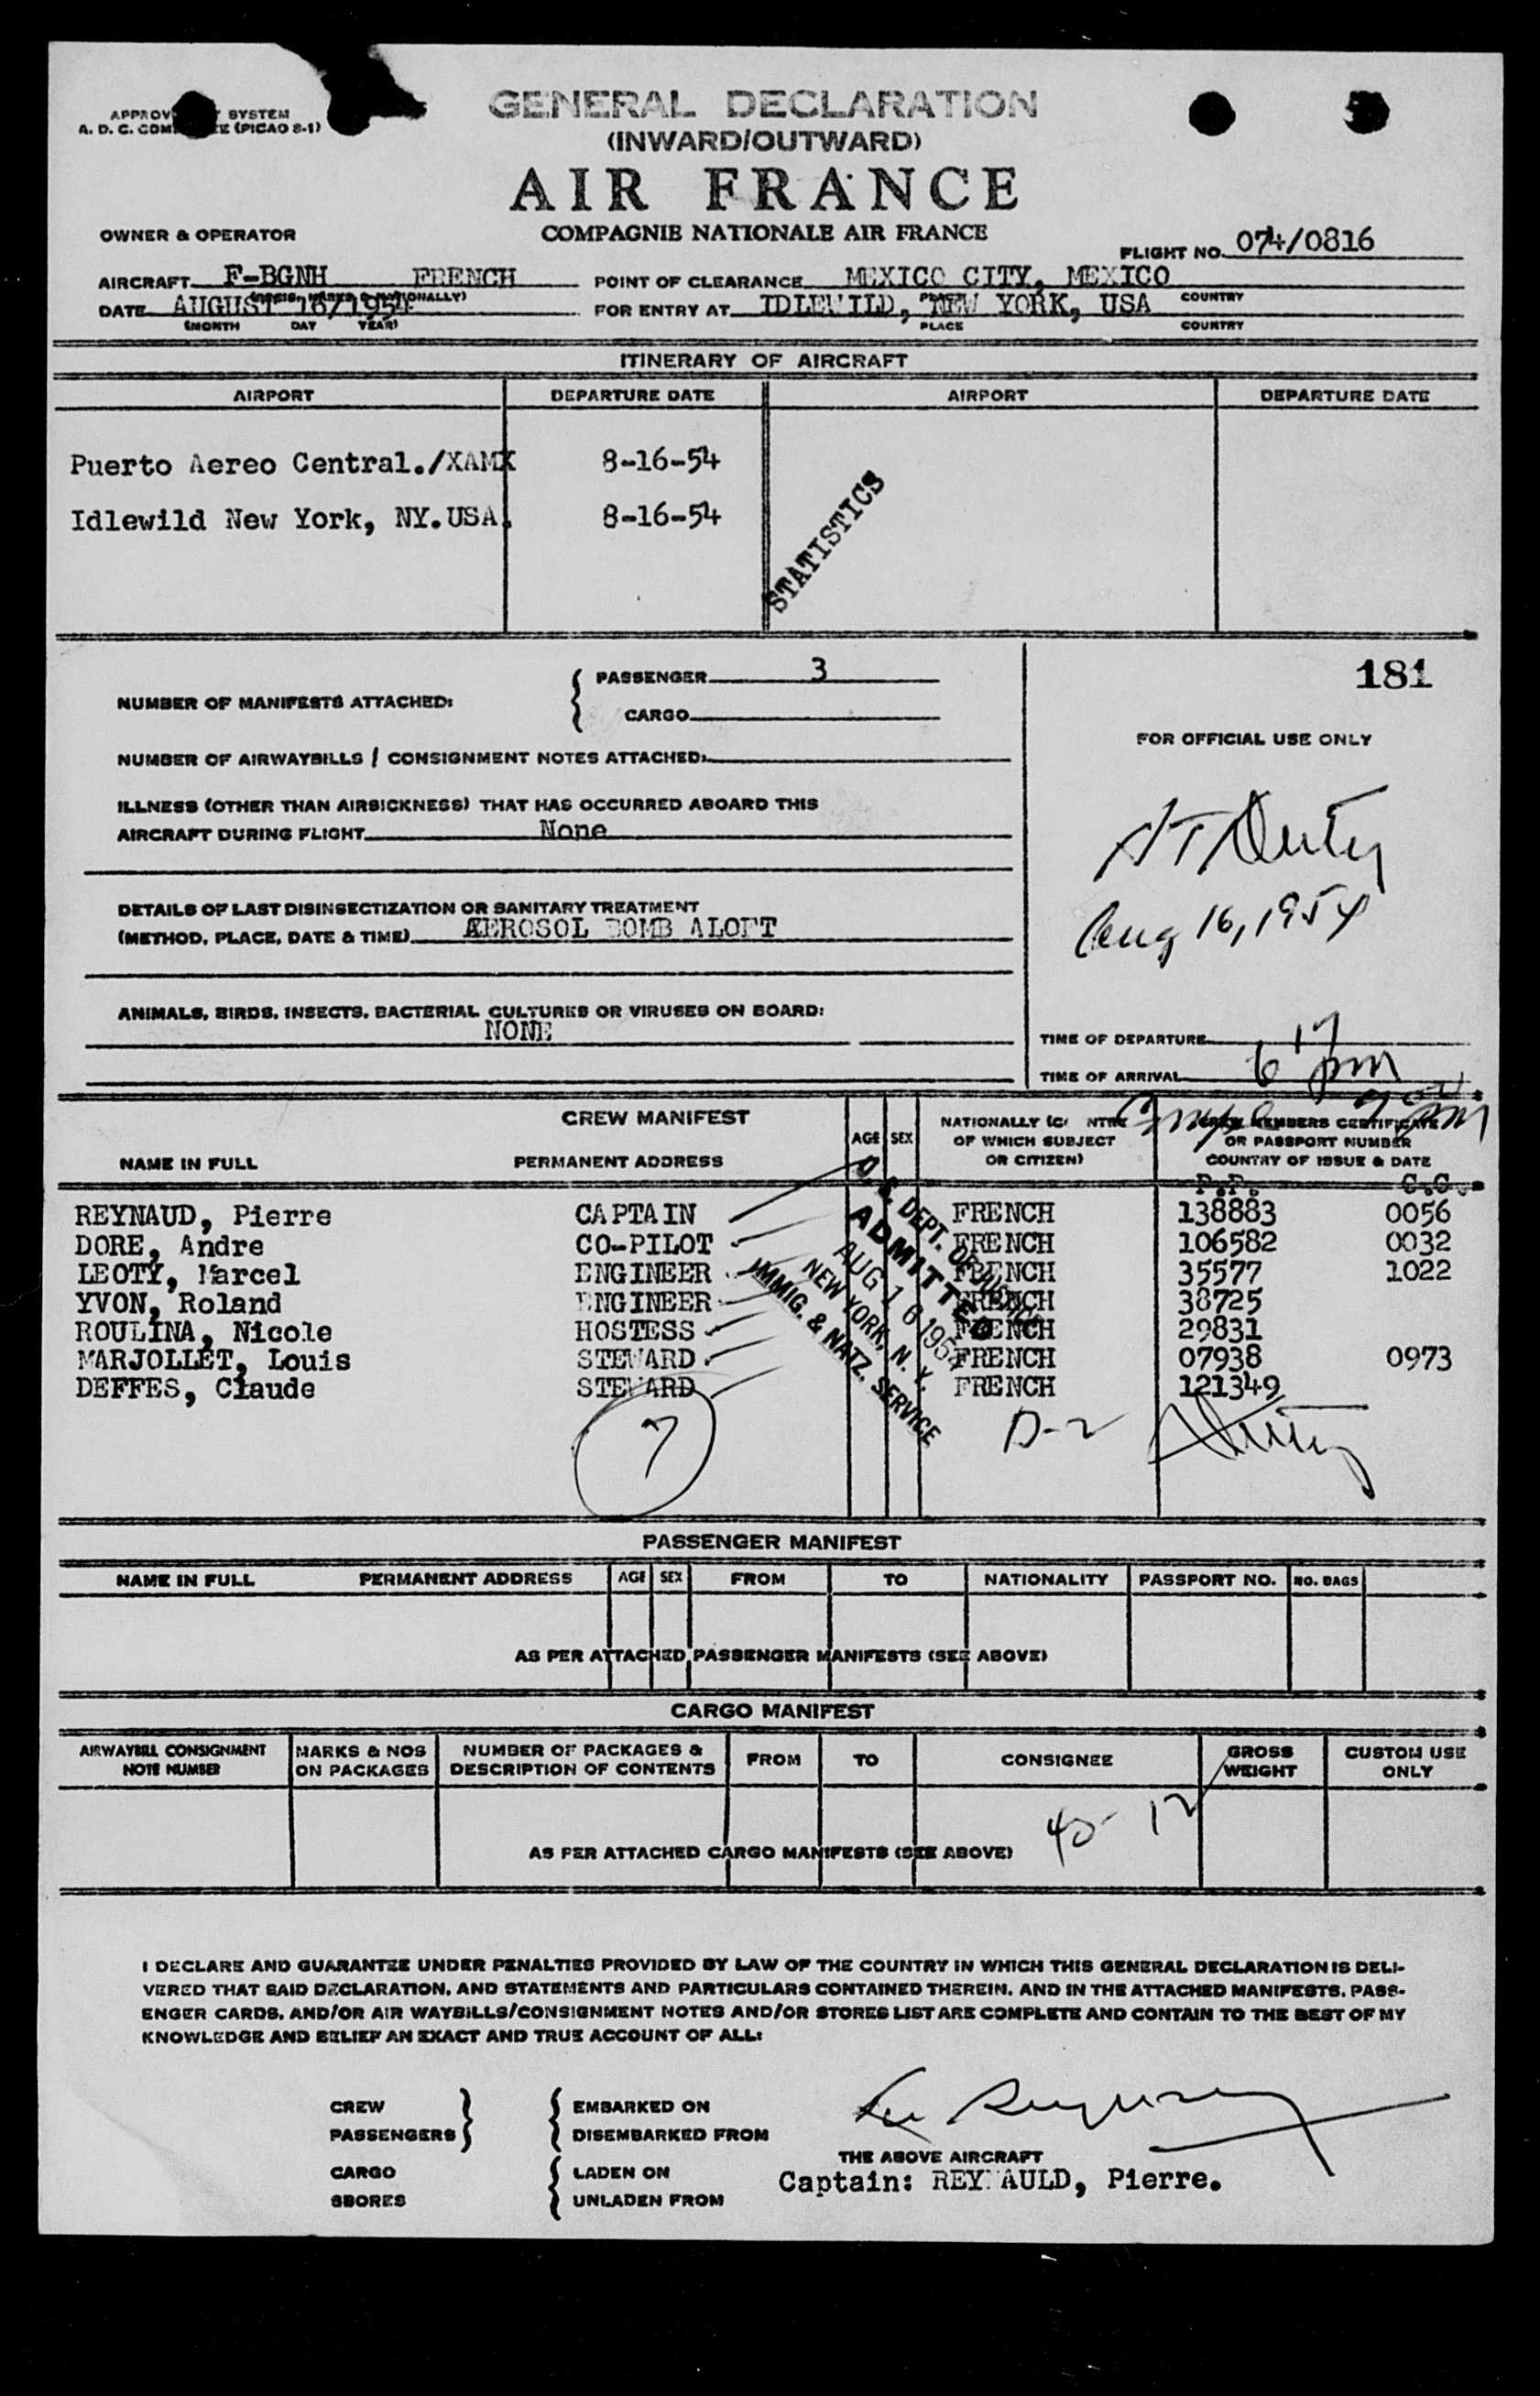 GENERAL DECLARATION
(INWARD/OUTWARD)
AIR FRANCE
COMPAGNIE NATIONALE AIR FRANCE
SYSTEM
A. D. C. (PICAO S-1)
OWNER & OPERATOR
FLIGHT NO. 074/0816
AIRCRAFT F-BGNH FRENCH POINT OF CLEARANCE MEXICO CITY, MEXICO
DATE AUGUST 16/1954 FOR ENTRY AT IDLEWILD, NEW YORK, USA COUNTRY
(MONTH DAY YEAR) PLACE COUNTRY
ITINERARY OF AIRCRAFT
AIRPORT DEPARTURE DATE AIRPORT DEPARTURE DATE
Puerto Aereo Central./XAMX 8-16-54
Idlewild New York, NY.USA. 8-16-54
STATISTICS
181
NUMBER OF MANIFESTS ATTACHED: PASSENGER 3
CARGO
FOR OFFICIAL USE ONLY
NUMBER OF AIRWAYBILLS / CONSIGNMENT NOTES ATTACHED:
ILLNESS (OTHER THAN AIRSICKNESS) THAT HAS OCCURRED ABOARD THIS
AIRCRAFT DURING FLIGHT None
DETAILS OF LAST DISINSECTIZATION OR SANITARY TREATMENT
(METHOD, PLACE, DATE & TIME) AEROSOL BOMB ALOFT
Aug 16, 1954
ANIMALS, BIRDS, INSECTS, BACTERIAL CULTURES OR VIRUSES ON BOARD:
NONE
TIME OF DEPARTURE
TIME OF ARRIVAL 6 17 pm
CREW MANIFEST
NAME IN FULL PERMANENT ADDRESS AGE SEX NATIONALLY OF WHICH SUBJECT OR CITIZEN) CREW MEMBERS CERTIFICATE OR PASSPORT NUMBER COUNTRY OF ISSUE & DATE
P.P. C.C.
REYNAUD, Pierre CAPTAIN FRENCH 138883 0056
DORE, Andre CO-PILOT FRENCH 106582 0032
LEOTY, Marcel ENGINEER FRENCH 35577 1022
YVON, Roland ENGINEER FRENCH 38725
ROULINA, Nicole HOSTESS FRENCH 29831
MARJOLLET, Louis STEWARD FRENCH 07938 0973
DEFFES, Claude STEWARD FRENCH 121349
U. S. DEPT. OF JUSTICE
ADMITTED
AUG 16 1954
NEW YORK, N. Y.
IMMIG. & NATZ. SERVICE
7
D-2
PASSENGER MANIFEST
NAME IN FULL PERMANENT ADDRESS AGE SEX FROM TO NATIONALITY PASSPORT NO. NO. BAGS
AS PER ATTACHED PASSENGER MANIFESTS (SEE ABOVE)
CARGO MANIFEST
AIRWAYBILL CONSIGNMENT NOTE NUMBER MARKS & NOS ON PACKAGES NUMBER OF PACKAGES & DESCRIPTION OF CONTENTS FROM TO CONSIGNEE GROSS WEIGHT CUSTOM USE ONLY
AS PER ATTACHED CARGO MANIFESTS (SEE ABOVE)
I DECLARE AND GUARANTEE UNDER PENALTIES PROVIDED BY LAW OF THE COUNTRY IN WHICH THIS GENERAL DECLARATION IS DELI-
VERED THAT SAID DECLARATION, AND STATEMENTS AND PARTICULARS CONTAINED THEREIN, AND IN THE ATTACHED MANIFESTS, PASS-
ENGER CARDS, AND/OR AIR WAYBILLS/CONSIGNMENT NOTES AND/OR STORES LIST ARE COMPLETE AND CONTAIN TO THE BEST OF MY
KNOWLEDGE AND BELIEF AN EXACT AND TRUE ACCOUNT OF ALL:
CREW EMBARKED ON
PASSENGERS DISEMBARKED FROM
THE ABOVE AIRCRAFT
CARGO LADEN ON
Captain: REYNAULD, Pierre.
SBORES UNLADEN FROM